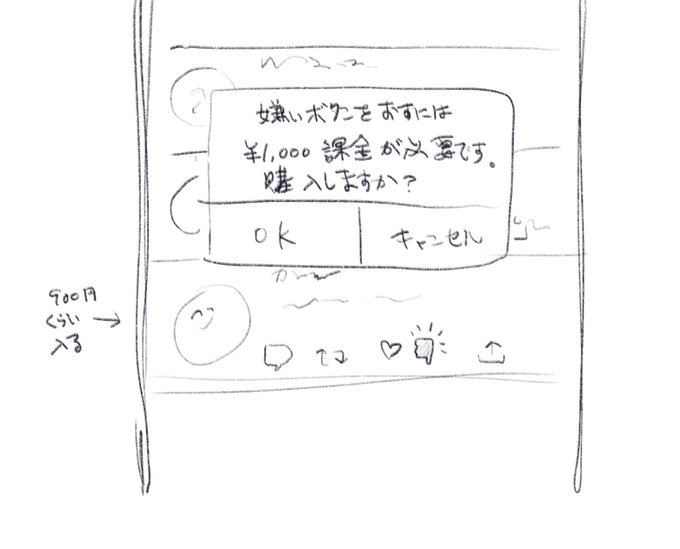 嫌いボタンをおすには
¥1,000 課金が必要です。
購入しますか？
OK
キャンセル
900円
くらい
入る